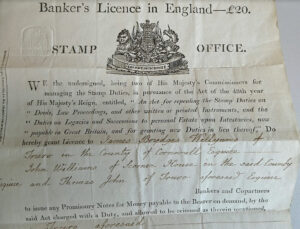 Banker's Licence in England—£20.
STAMP OFFICE.
WE the undersigned, being two of His Majesty's Commissioners for
managing the Stamp Duties, in pursuance of the Act of the
of His Majesty's Reign, entitled, "An Act for repealing the Stamp Duties on
"Deeds, Law Proceedings, and other written or printed Instruments, and the
"Duties on Legacies and Successions to personal Estate upon Intestacies, now
"payable in Great Britain, and for granting new Duties in lieu thereof," Do
hereby grant Licence to James Brydges Willyams of
Truro in the County of Cornwall Esquire
John Williams of House in the said County
Esquire and Thomas John of Truro aforesaid Esquire
Bankers and Copartners
to issue any Promissory Notes for Money payable to the Bearer on demand, by the
said Act charged with a Duty, and allowed to be reissued as therein mentioned,
aforesaid